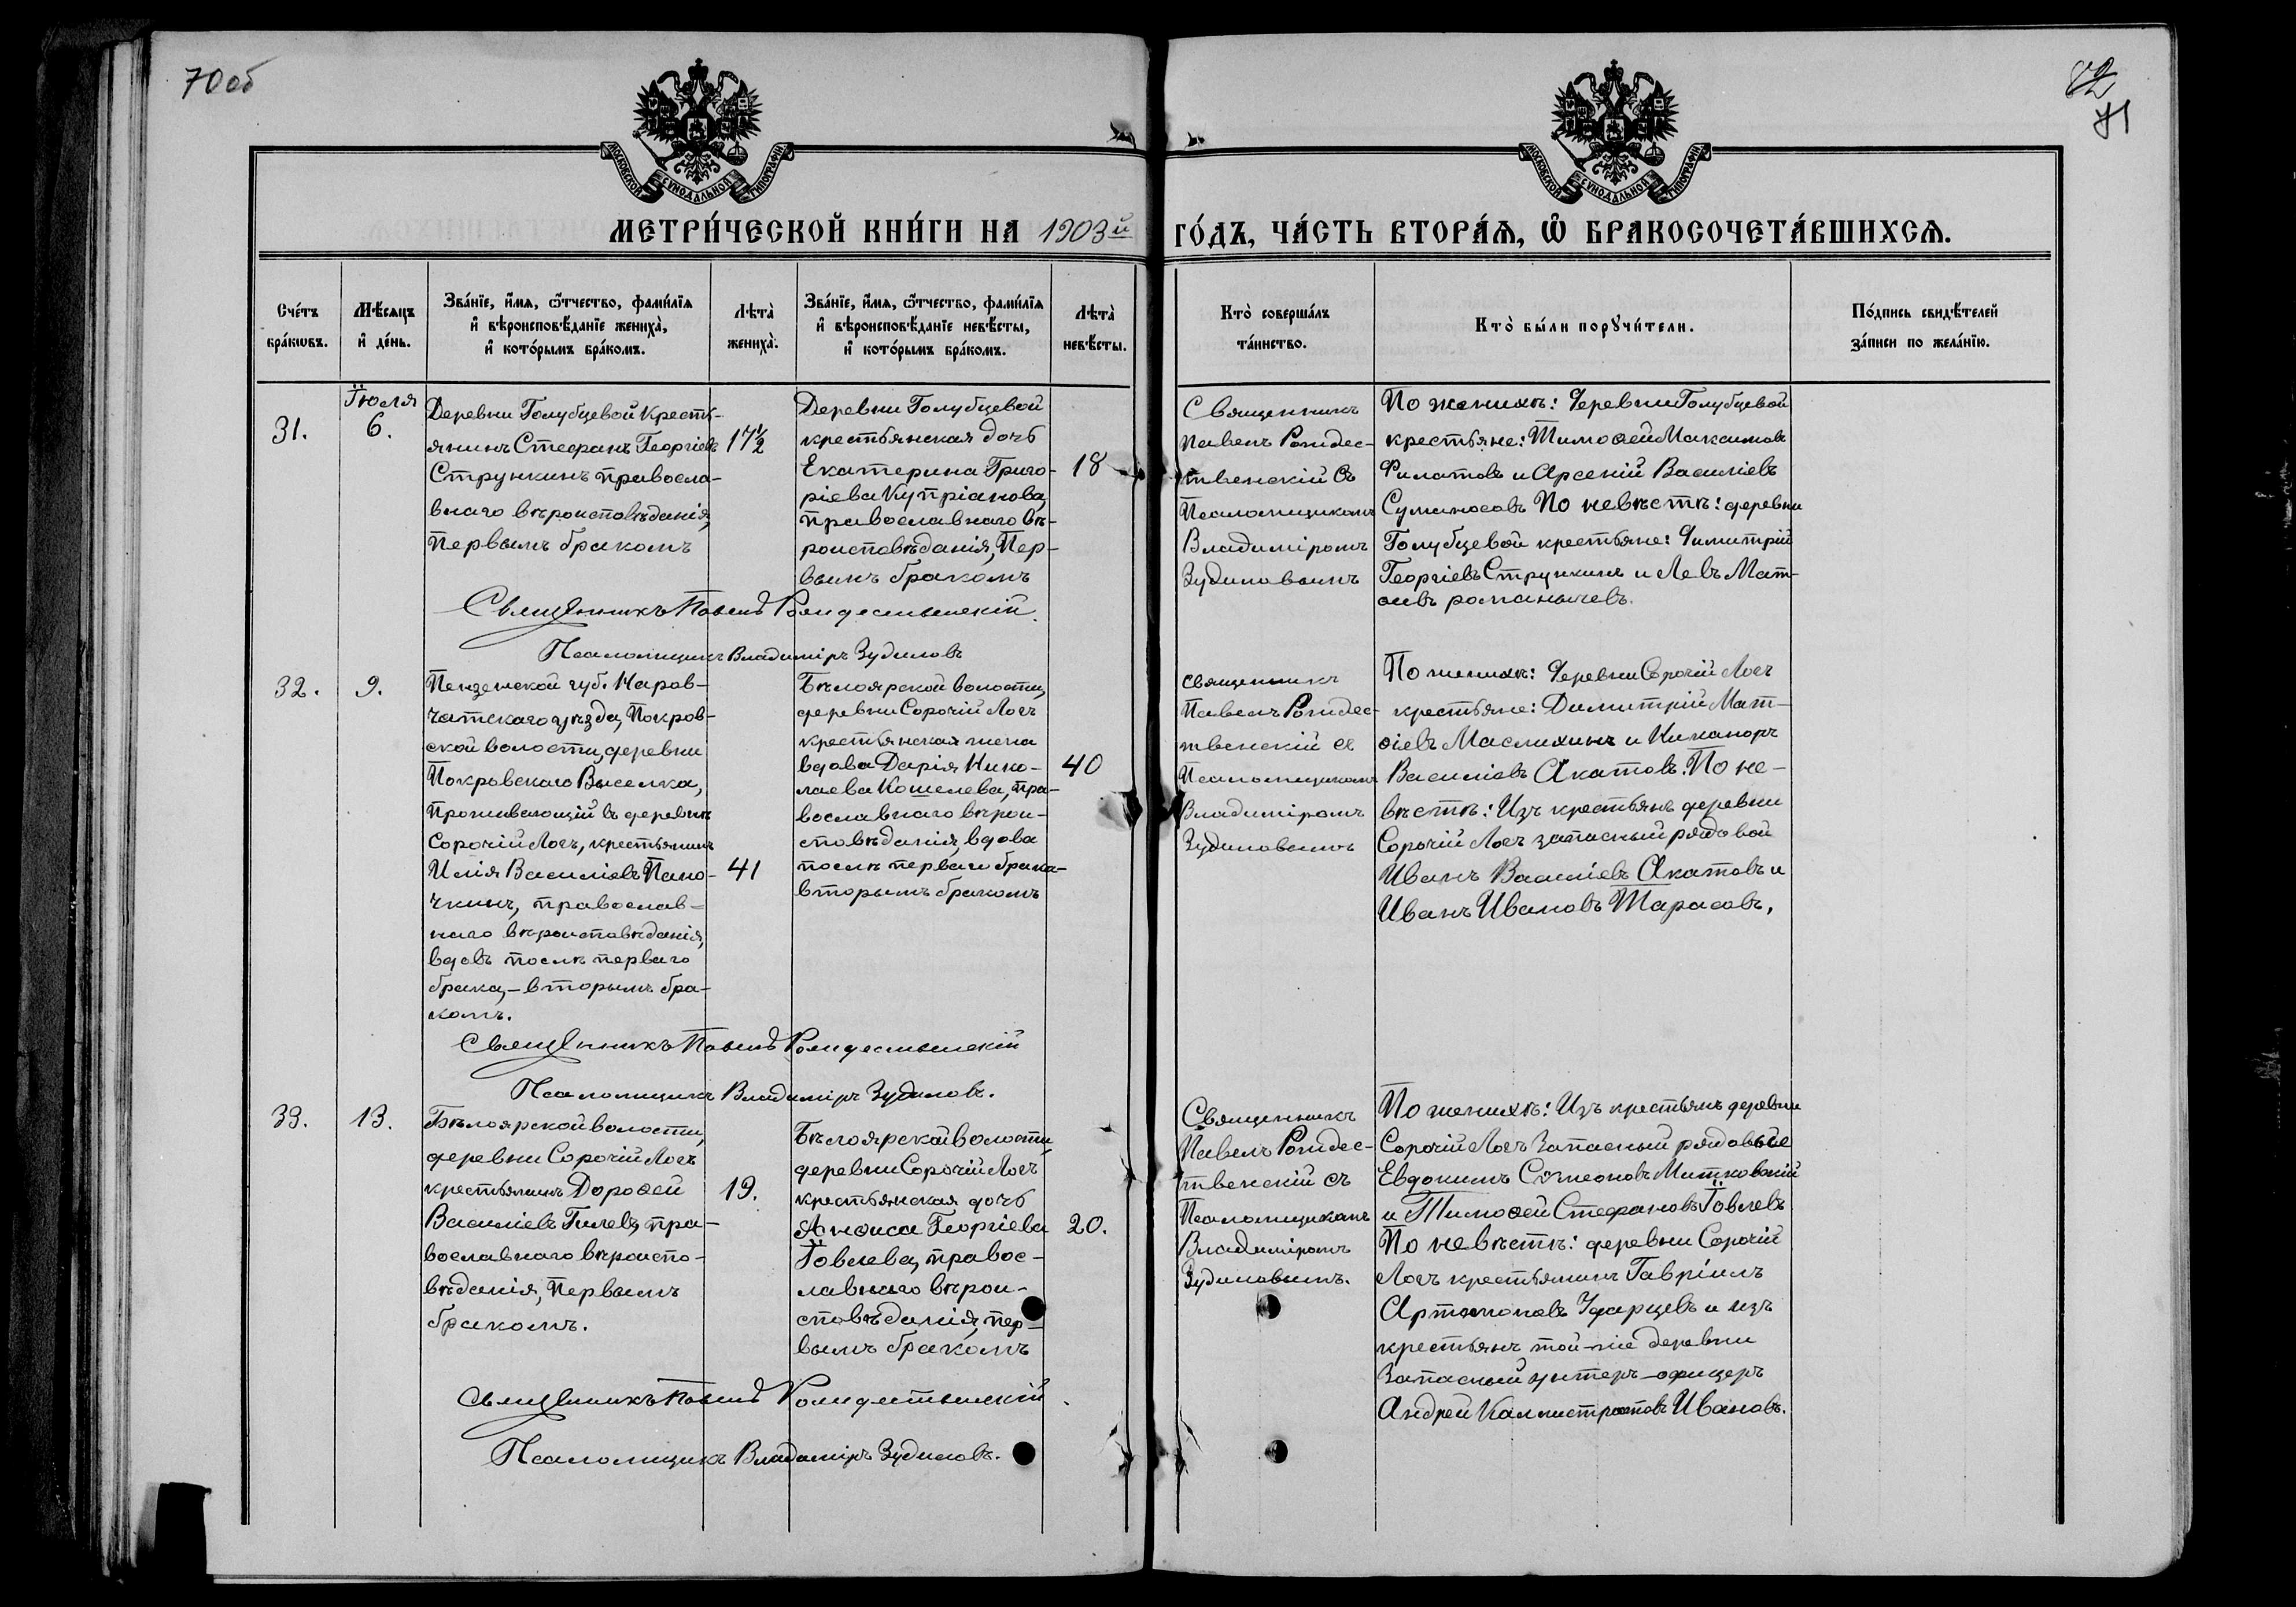 70 об
82
71
МОСКОВСКОЙ СУНОДАЛЬНОЙ ТИПОГРАФІИ
МОСКОВСКОЙ СУНОДАЛЬНОЙ ТИПОГРАФІИ
МЕТРИ́ЧЕСКОЙ КНИ́ГИ НА 1903й ГО́ДЪ, ЧА́СТЬ ВТОРА́Я, Ѡ БРАКОСОЧЕТА́ВШИХСЯ.
Сче́тъ
бра́кѡвъ.
Мѣ́сяцъ
и҆ де́нь.
Зва́нїе, и҆́мя, ѻ҆́тчество, фами́лїя
и҆ вѣроисповѣ́данїе жениха̀,
и҆ кото́рымъ бра́комъ.
Лѣта̀
жениха̀.
Зва́нїе, и҆́мя, ѻ҆́тчество, фами́лїя
и҆ вѣроисповѣ́данїе невѣ́сты,
и҆ кото́рымъ бра́комъ.
Лѣта̀
невѣ́сты.
Кто̀ соверша́лъ
та́инство.
Кто̀ бы́ли порꙋчи́тели.
По́дпись свидѣ́телей
за́писи по жела́нїю.
31.
Іюля
6.
Деревни Голубцевой кресть-
янинъ Стефанъ Георгіевъ
Стрункинъ правосла-
внаго вѣроисповѣданія,
первымъ бракомъ
17½
Деревни Голубцевой
крестьянская дочь
Екатерина Григо-
ріева Купріанова,
православнаго вѣ-
роисповѣданія, пер-
вымъ бракомъ
18
Священникъ
Павелъ Рождес-
твенскій съ
Псаломщикомъ
Владиміромъ
Зудиловымъ
По женихѣ: Деревни Голубцевой
крестьяне: Тимоѳей Максимовъ
Филатовъ и Арсеній Василіевъ
Суминосовъ По невѣстѣ: деревни
Голубцевой крестьяне: Димитрій
Георгіевъ Стрункинъ и Левъ Мат-
ѳивъ романычевъ.
Священникъ Павелъ Рождественскій.
Псаломщикъ Владиміръ Зудиловъ
32.
9.
Пензенской губ. Наров-
чатскаго уѣзда, Покров-
ской волости, деревни
Покровскаго Выселка,
Проживающій въ деревнѣ
Сорочій Логъ, крестьянинъ
Илія Василіевъ Пано-
чкинъ, православ-
наго вѣроисповѣданія,
вдовъ послѣ перваго
брака, – вторымъ бра-
комъ.
41
Бѣлоярской волости,
деревни Сорочій Логъ
крестьянская жена
вдова Дарія Нико-
лаева Кошелева, пра-
вославнаго вѣрои-
сповѣданія, вдова
послѣ перваго брака-
вторымъ бракомъ
40
священникъ
Павелъ Рождес-
твенскій съ
Псаломщикомъ
Владиміромъ
Зудиловымъ
По женихѣ: Деревни Сорочій Логъ
крестьяне: Димитрій Мат-
ѳіевъ Маслихинъ и Никаноръ
Василіевъ Акатовъ. По не-
вѣстѣ: Изъ крестьянъ деревни
Сорочій Логъ запасный рядовой
Иванъ Василіевъ Акатовъ и
Иванъ Ивановъ Тарасовъ,
Священникъ Павелъ Рождественскій
Псаломщикъ Владиміръ Зудиловъ.
33.
13.
Бѣлоярской волости,
деревни Сорочій Логъ
крестьянинъ Дороѳей
Василіевъ Гилевъ, пра-
вославнаго вѣроиспо-
вѣданія, первымъ
бракомъ.
19.
Бѣлоярской волости,
деревни Сорочій Логъ
крестьянская дочь
Анѳиса Георгіева
Іовлева, правос-
лавнаго вѣрои-
сповѣданія, пер-
вымъ бракомъ
20.
Священникъ
Павелъ Рождес-
твенскій съ
Псаломщикомъ
Владиміромъ
Зудиловымъ.
По женихѣ: Изъ крестьянъ деревни
Сорочій Логъ Запасный рядовые
Евдокимъ Симеоновъ Митковскій
и Тимоѳей Стефановъ Іовлевъ
По невѣстѣ: деревни Сорочій
Логъ крестьянинъ Гавріилъ
Артамоновъ Уфарцевъ и изъ
крестьянъ той-же деревни
Запасный унтеръ-офицеръ
Андрей Каллистратовъ Ивановъ.
Священникъ Павелъ Рождественскій.
Псаломщикъ Владиміръ Зудиловъ.